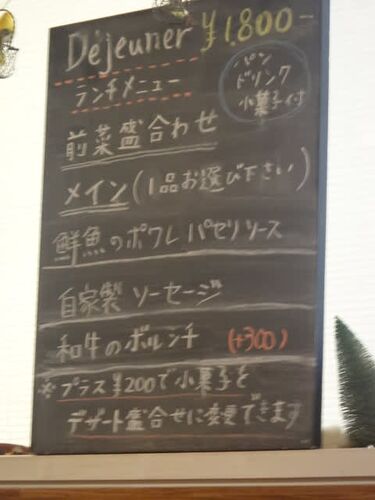 Déjeuner ¥1,800-
ランチメニュー
パン
ドリンク
小菓子付
前菜盛合わせ
メイン(1品お選び下さい)
鮮魚のポワレ パセリソース
自家製 ソーセージ
和牛のボルシチ (+300)
※プラス¥200で小菓子を
デザート盛合せに変更できます